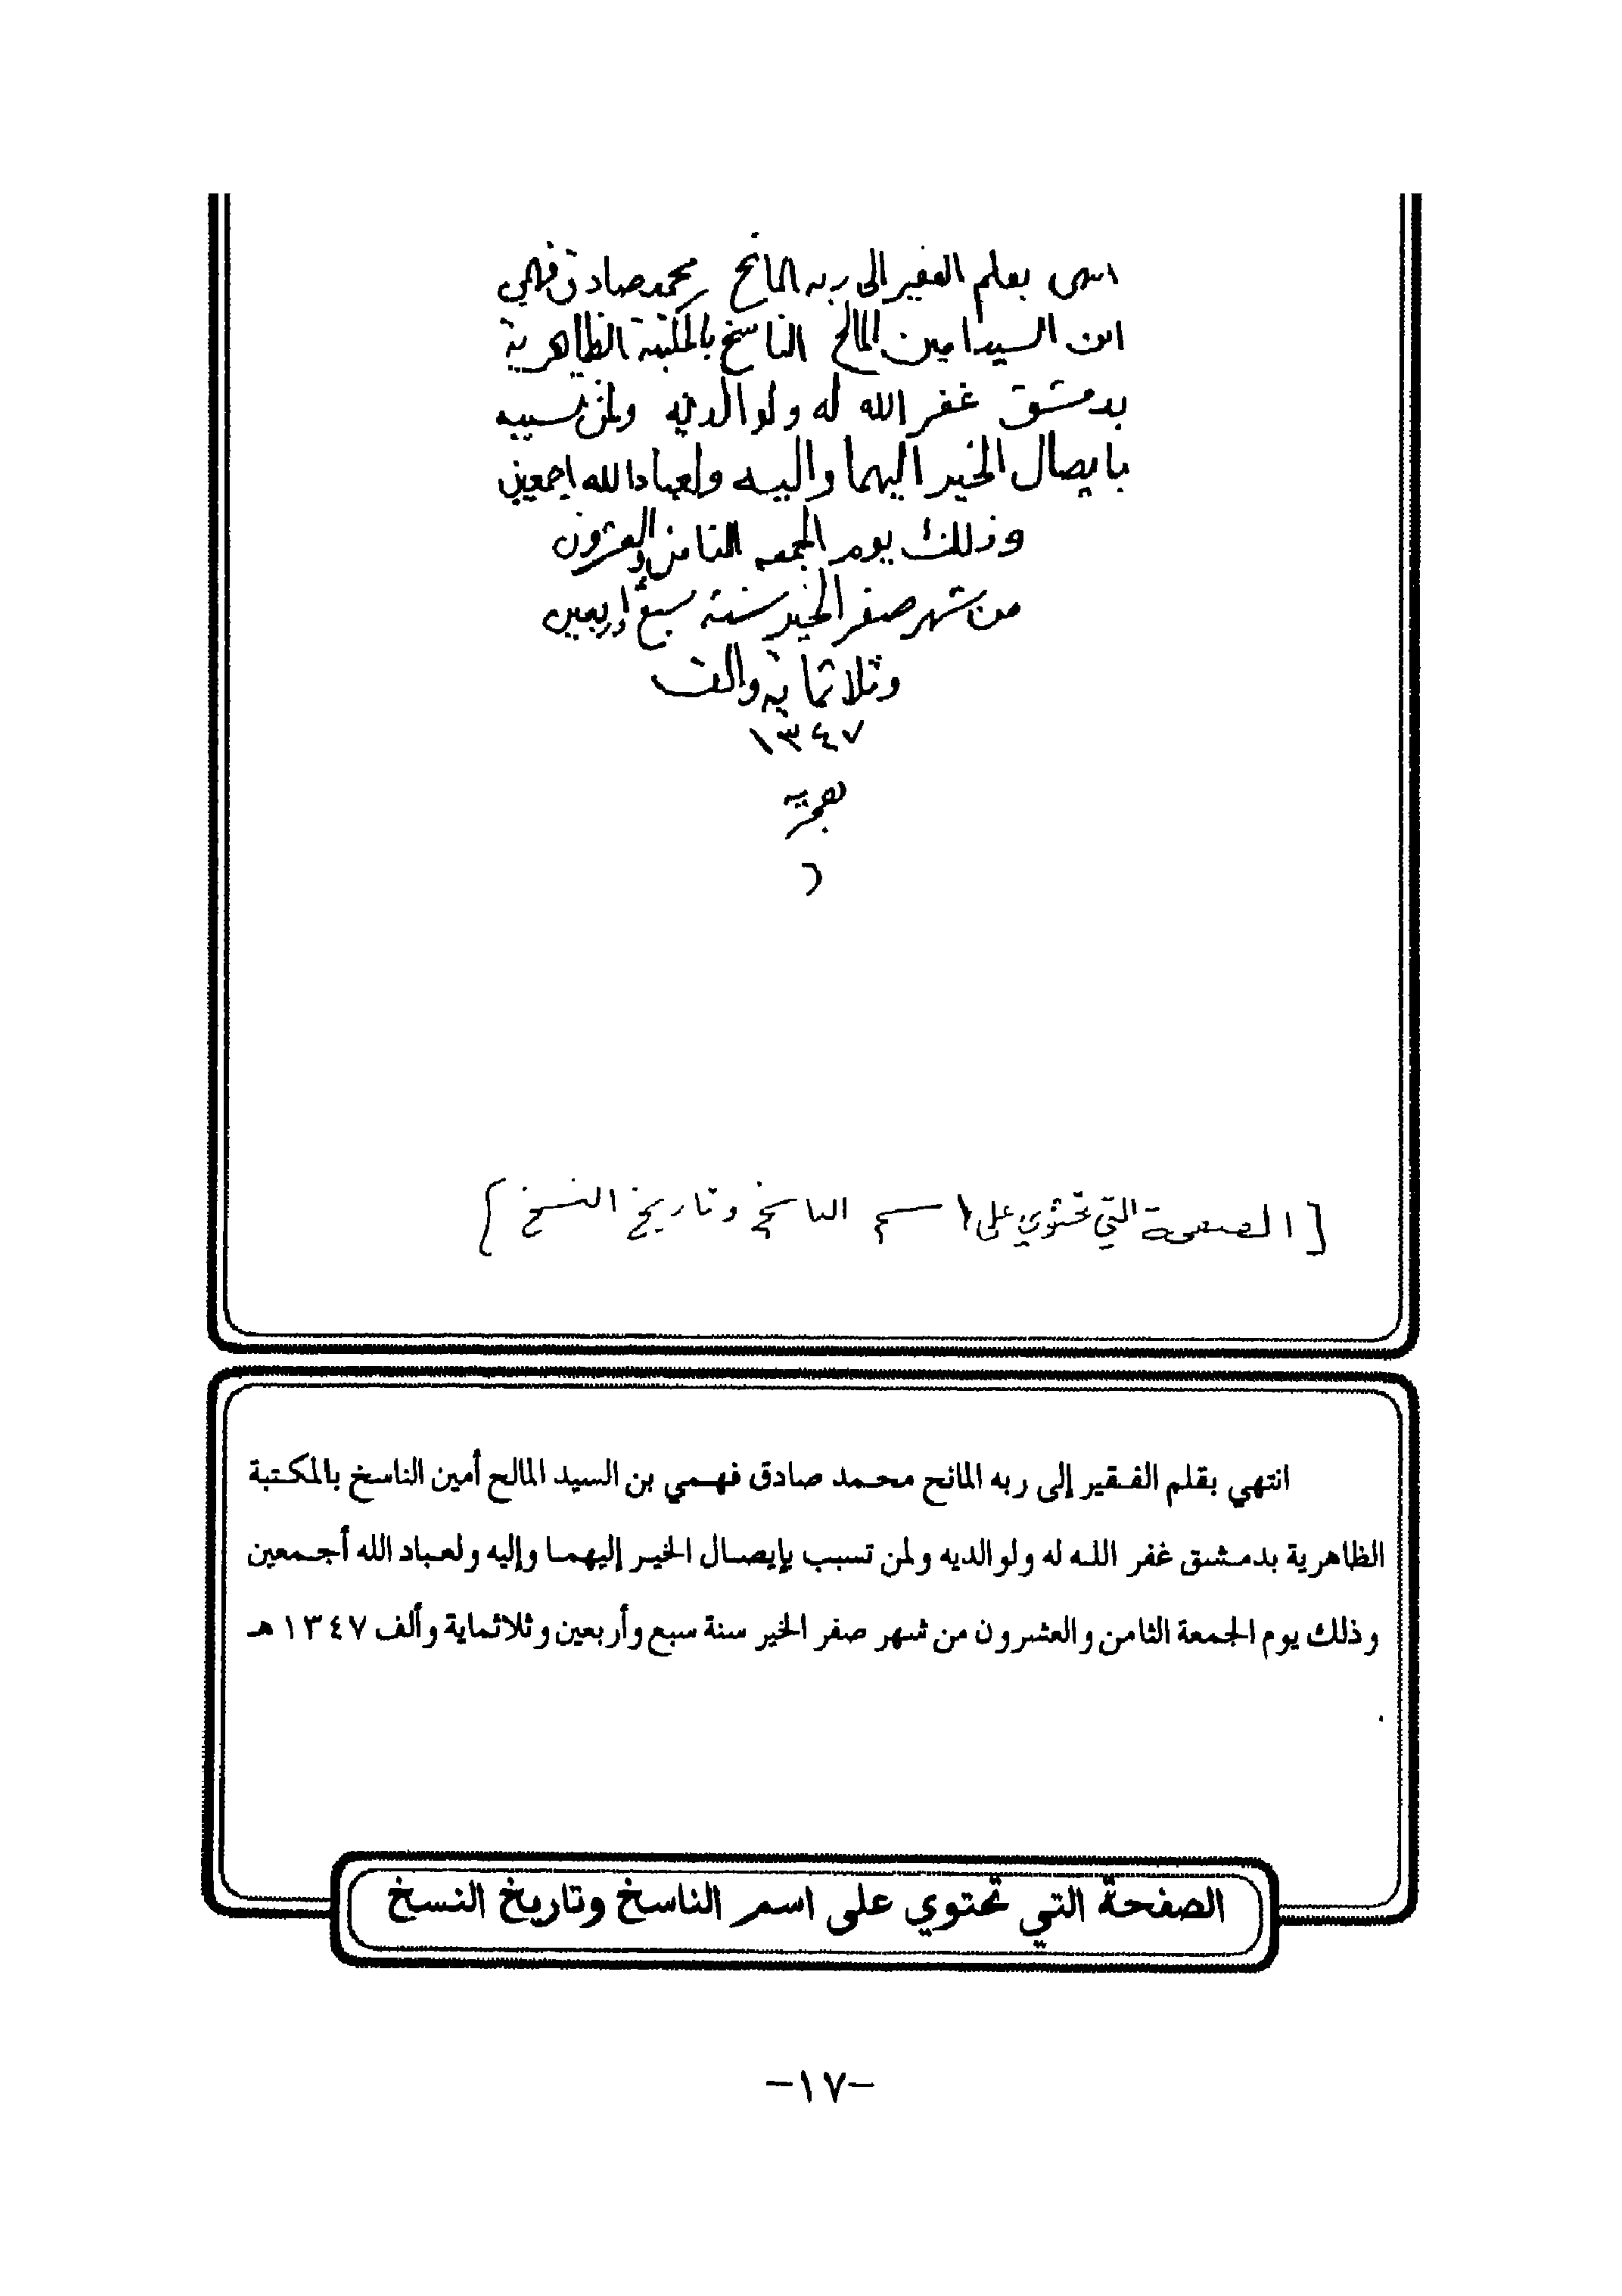 انتهى بقلم الفقير الى ربه المانح محمد صادق فهمي
ابن السيد امين المالح الناسخ بالمكتبة الظاهرية
بدمشق غفر الله له ولوالديه ولمن تسبب
بايصال الخير اليهما واليه ولعباد الله اجمعين
وذلك يوم الجمعه الثامن والعشرون
من شهر صفر الخير سنة سبع واربعين
وثلاثماية والف
١٣٤٧
هجرية
[الصفحة التي تحتوي على اسم الناسخ وتاريخ النسخ]
انتهي بقلم الفقير إلى ربه المانح محمد صادق فهمي بن السيد المالح أمين الناسخ بالمكتبة
الظاهرية بدمشق غفر الله له ولوالديه ولمن تسبب بإيصال الخير إليهما وإليه ولعباد الله أجمعين
وذلك يوم الجمعة الثامن والعشرون من شهر صفر الخير سنة سبع وأربعين وثلاثماية وألف ١٣٤٧ هـ
.
الصفحة التي تحتوي على اسم الناسخ وتاريخ النسخ
-١٧-